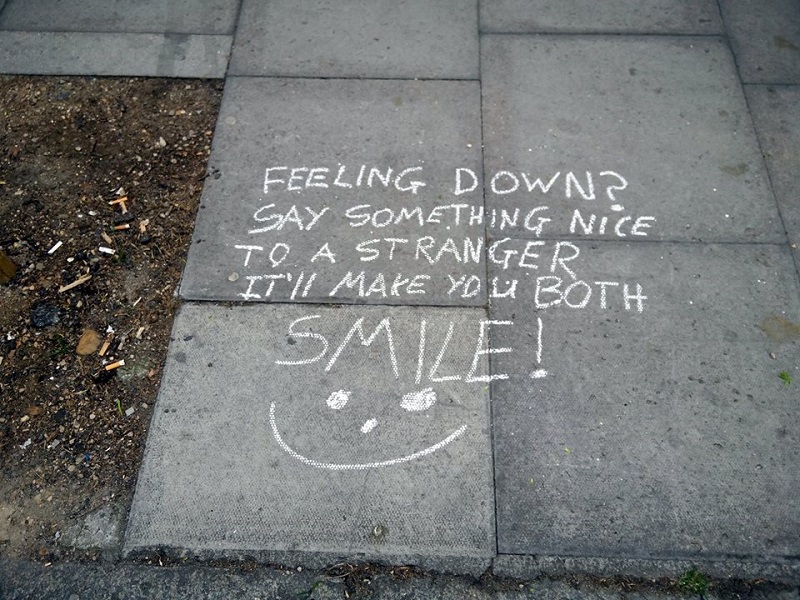 FEELING DOWN?
SAY SOMETHING NICE
TO A STRANGER
IT'll MAKE YOU BOTH
SMILE!